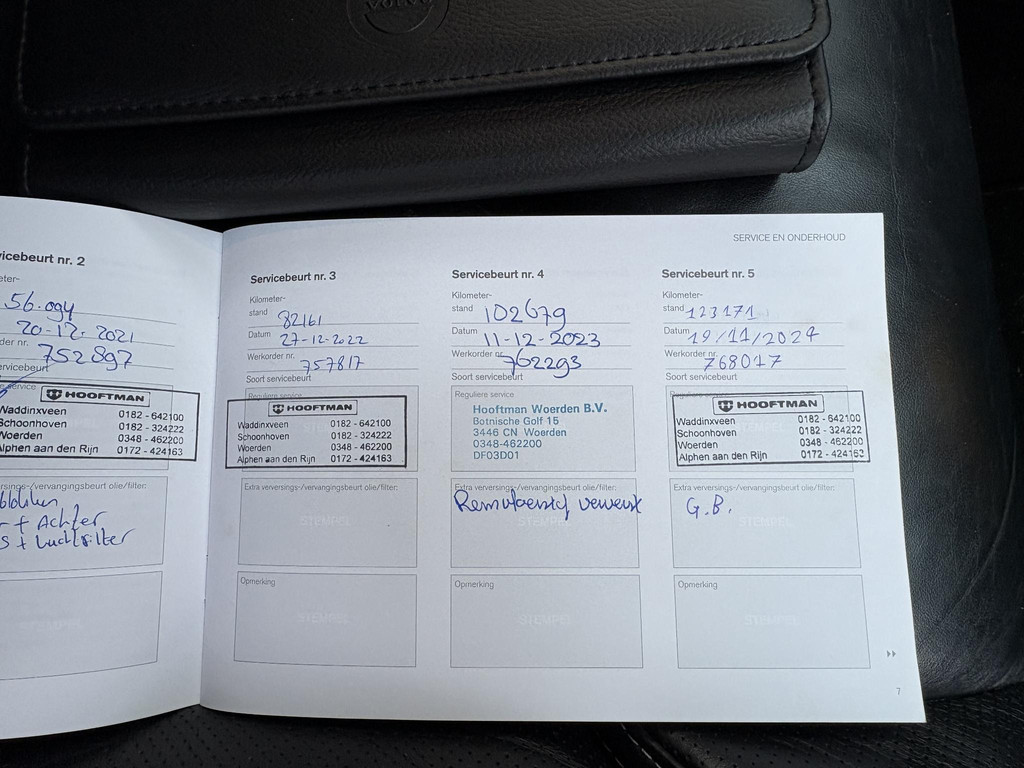 VOLVO
SERVICE EN ONDERHOUD
vicebeurt nr. 2
eter-
56.094
20-12-2021
der nr. 752897
rvicebeurt
service
HOOFTMAN
Waddinxveen 0182 - 642100
Schoonhoven 0182 - 324222
Woerden 0348 - 462200
Alphen aan den Rijn 0172 - 424163
ersings-/vervangingsbeurt olie/filter:
+ Achter
s + Luchtfilter
STEMPEL
Servicebeurt nr. 3
Kilometer-
stand 82161
Datum 27-12-2022
Werkorder nr. 757817
Soort servicebeurt
Reguliere service
HOOFTMAN
Waddinxveen 0182 - 642100
Schoonhoven 0182 - 324222
Woerden 0348 - 462200
Alphen aan den Rijn 0172 - 424163
Extra verversings-/vervangingsbeurt olie/filter:
STEMPEL
Opmerking
STEMPEL
Servicebeurt nr. 4
Kilometer-
stand 102679
Datum 11-12-2023
Werkorder nr. 762293
Soort servicebeurt
Reguliere service
Hooftman Woerden B.V.
Botnische Golf 15
3446 CN Woerden
0348-462200
DF03D01
Extra verversings-/vervangingsbeurt olie/filter:
Remvloeistof ververst
STEMPEL
Opmerking
STEMPEL
Servicebeurt nr. 5
Kilometer-
stand 123171
Datum 19/11/2024
Werkorder nr. 768017
Soort servicebeurt
Reguliere service
HOOFTMAN
Waddinxveen 0182 - 642100
Schoonhoven 0182 - 324222
Woerden 0348 - 462200
Alphen aan den Rijn 0172 - 424163
Extra verversings-/vervangingsbeurt olie/filter:
G.B.
STEMPEL
Opmerking
STEMPEL
7